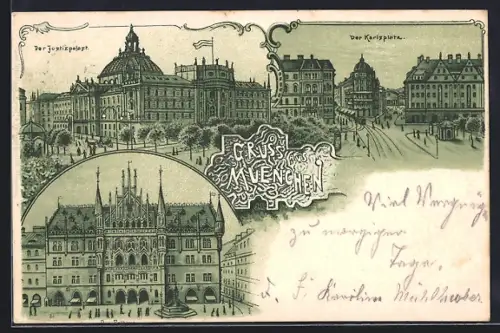 Der Justizpalast.
Der Karlsplatz.
GRUSS
AUS
MUENCHEN
Viel Vergnüg
zu morgiger
Tage.
d. F. Karolina Mühlhuber